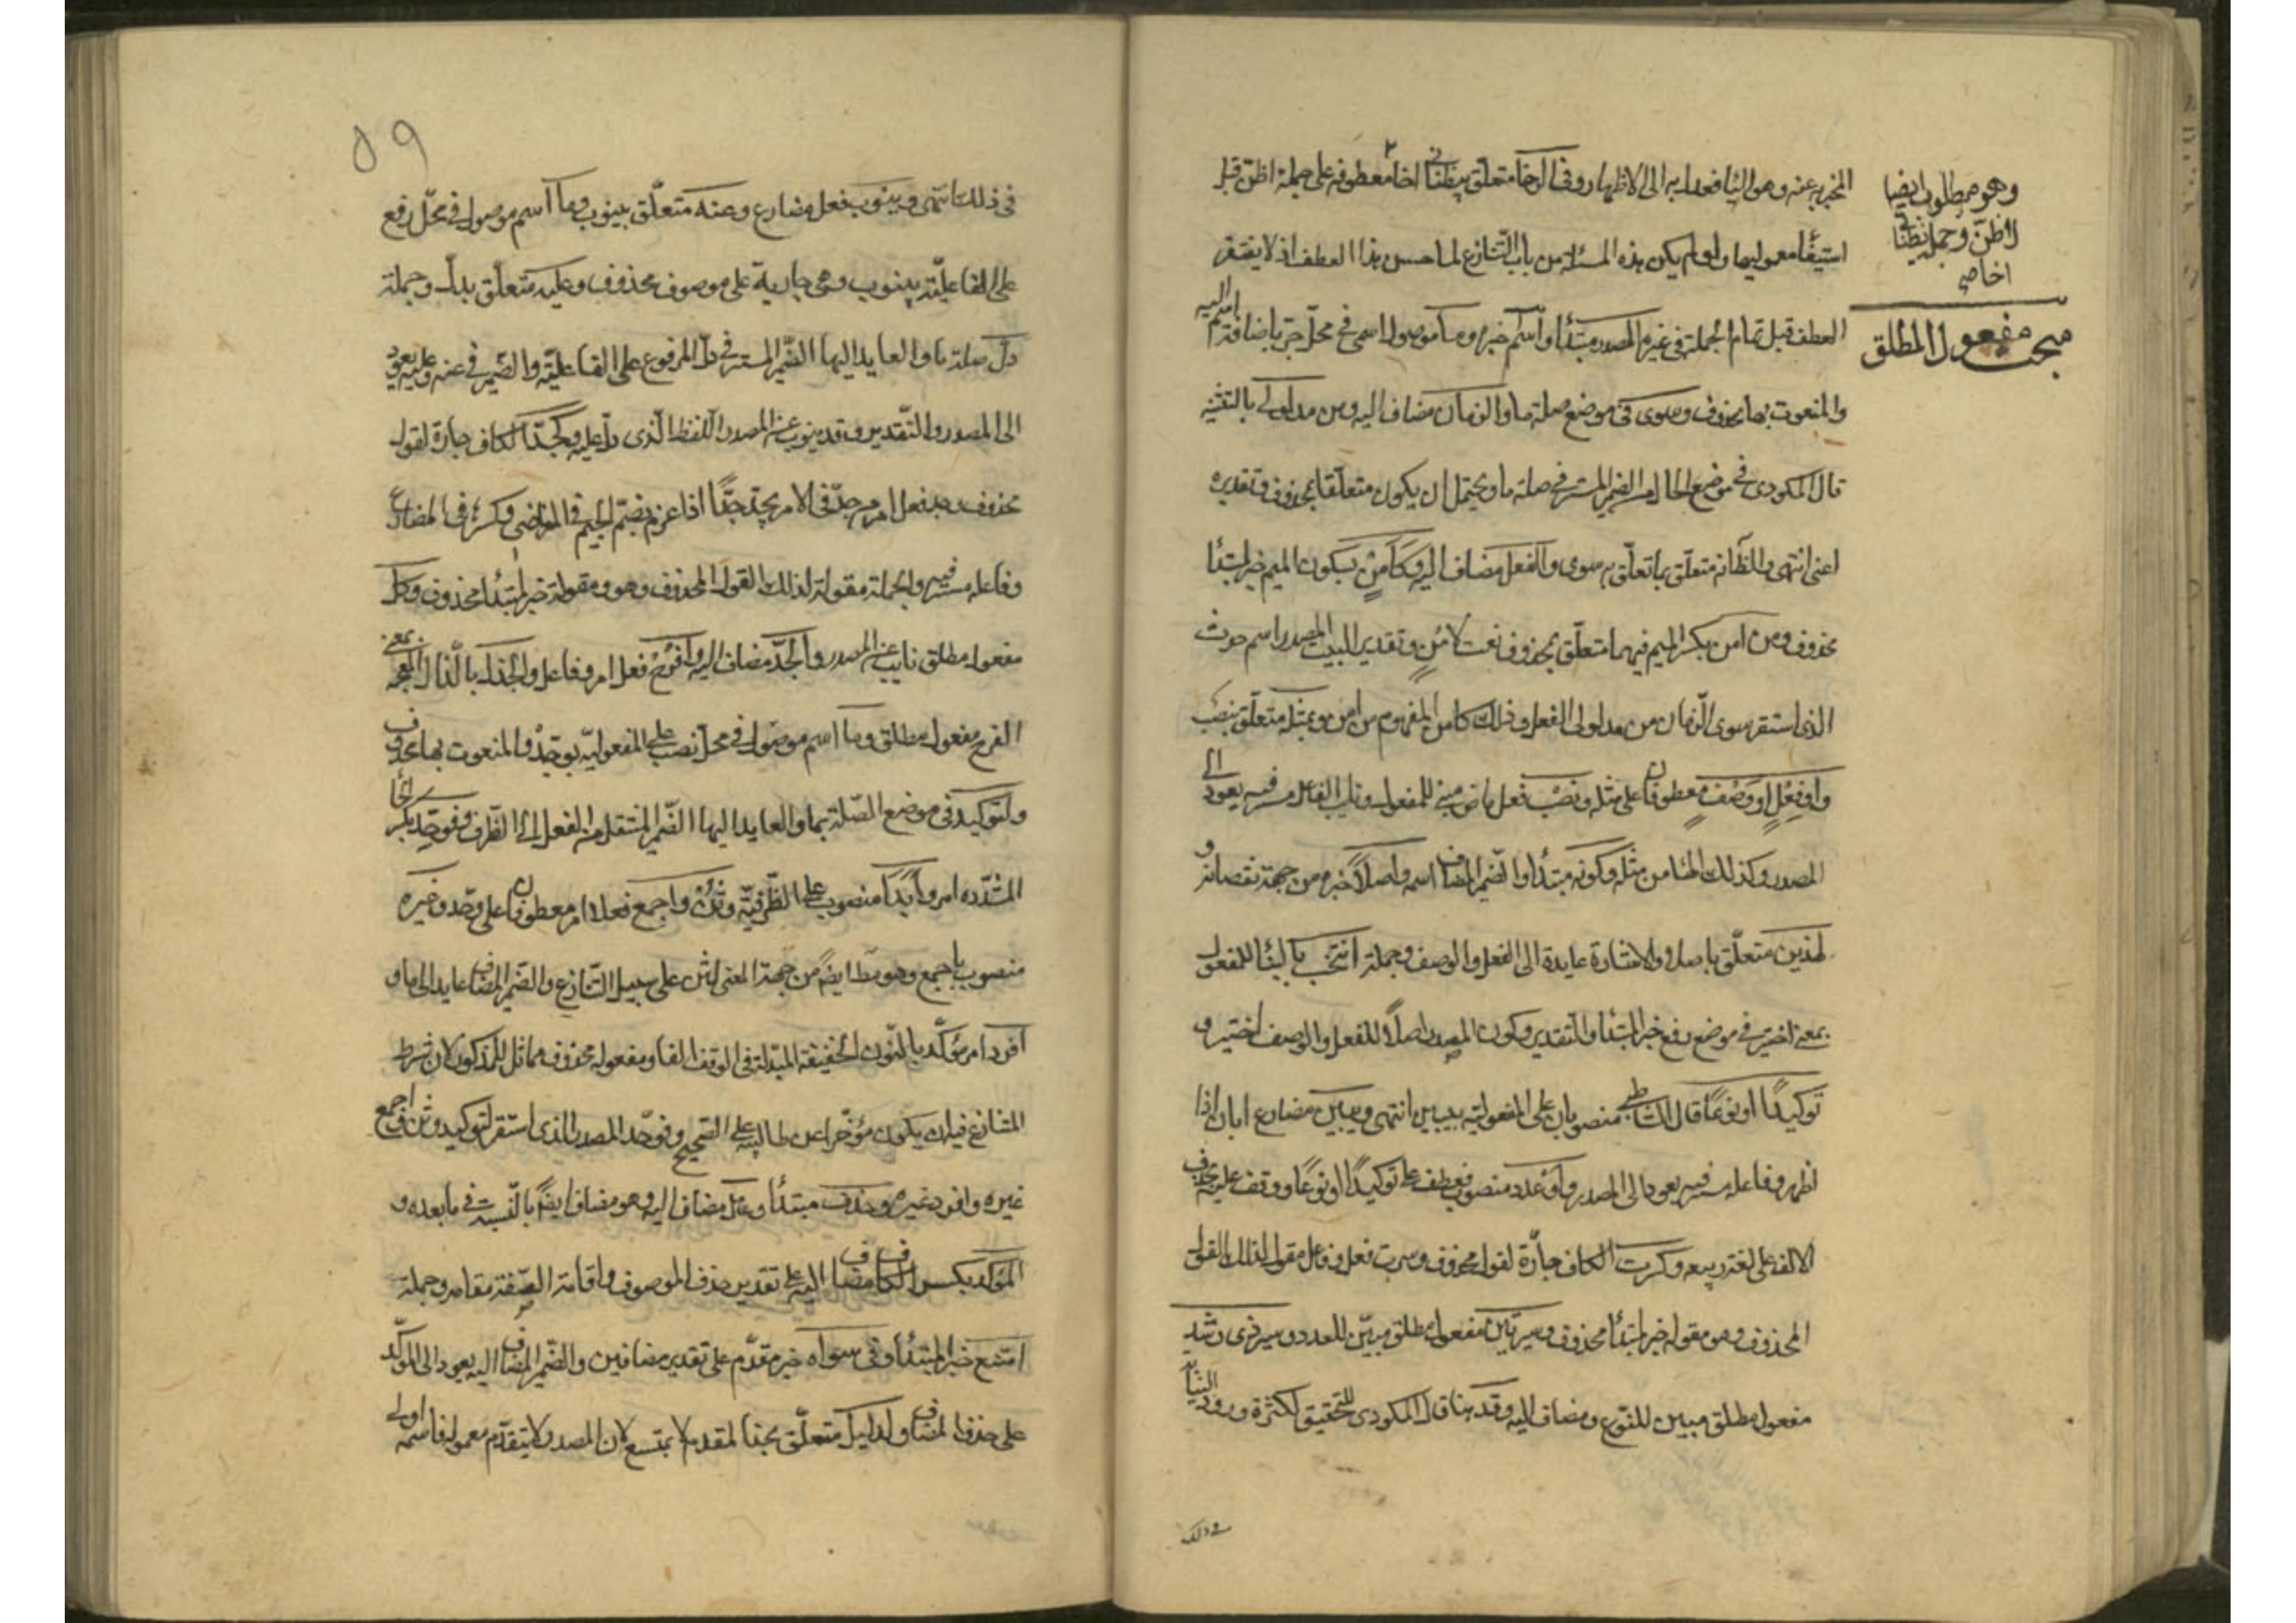 وهو مطلوب ايضا
لاظنّ وجملة يظنّاني
اخا ص
مبحث مفعول المطلق
المخبر به عنه وهو الياء فعدل به الى الاظهار وفي الرخا متعلّق بيظنّاني اخا معطوفة على جملة اظنّ قبل
استيفاء معموليها ولو لم يكن هذه المسئلة من باب التّنازع لما حسن هذا العطف اذ لا يفتقر
العطف قبل تمام الجملة في غيره المصدر مبتدأ واسم خبره وما موصول اسمي في محلّ جرّ باضافة اسم اليه
والمنعوت بها محذوف وسوى في موضع صلة ما والزمان مضاف اليه ومن مدلولي بالتثنية
قال المكودي في موضع الحال من الضمير المستتر في صلة ما ويحتمل ان يكون متعلّقا بمحذوف وتقديره
اعني انتهى والظّ انه متعلّق بما تعلّق به سوى والفعل مضاف اليه وكأَمْنٍ بسكون الميم خبر لمبتدأ
محذوف ومن امن بكسر الميم فيهما متعلّق بمحذوف نعت لأمن وتقدير البيت المصدر اسم حدث
الذي استقر سوى الزّمان من مدلولي الفعل وذلك كأمن المفهوم من امن وبمثله متعلّق بنصب
واو فعلٍ او وصفٍ معطوفان على مثله ونصب فعل ماض مبني للمفعول ونايب الفاعل مستتر فيه يعود الى
المصدر وكذلك الهاء من مثله وكونه مبتدأ والضمير المضاف اسمه واصلاً خبره من جهة نقصانه و
لهذين متعلّق باصل والاشارة عايدة الى الفعل والوصف وجملة انتخب بالبناء للمفعول
بمعنى اختير في موضع رفع خبر المبتدأ والتقدير وكون المصدر اصلاً للفعل والوصف اختير و
توكيداً او نوعاً قال الشاطبي منصوبان على المفعولية بيبين انتهى ويبين مضارع ابان اذا
اظهر وفاعله مستتر فيه يعود الى المصدر واو عدد منصوب فعطف على توكيداً او نوعاً ووقف عليه بحذف
الالف على لغة ربيعه وكسرت الكاف جارّة لقول محذوف وسرت فعل وفاعل مقول لذلك القول
المحذوف وهو مقوله خبر لمبتدأ محذوف وسيرتين مفعول مطلق مبيّن للعدد وسير ذي رشد
مفعول مطلق مبين للنوع ومضاف اليه وقد هنا قال المكودي للتحقيق لكثرة ورود النيابة
في ذلك
٥٩
في ذلك انتهى وينوب فعل مضارع وعنه متعلّق بينوب وما اسم موصول في محلّ رفع
على الفاعليّة بينوب وهي جارية على موصوف محذوف وعليه متعلّق بدلّ وجملة
دلّ صلة ما والعايد اليها الضّمير المستتر في دلّ المرفوع على الفاعليّة والضّمير في عنه وعليه يعود
الى المصدر والتّقدير وقد ينوب عن المصدر اللفظ الّذي دلّ عليه وكجدّ الكاف جارة لقول
محذوف وجد فعل امر من جدّ في الامر يجد جدًّا اذا عزم بضمّ الجيم في الماضي وكسرها في المضارع
وفاعله مستتر فيه والجملة مقولة لذلك القول المحذوف وهو ومقوله خبر لمبتدأ محذوف وكلّ
مفعول مطلق نايب عن المصدر والجدّ مضاف اليه وافرح فعل امر وفاعل والجذل بالذّال المعجمة بمعنى
الفرح مفعول مطلق وما اسم موصول في محلّ نصب على المفعوليّة بوحّد والمنعوت بها محذوف
ولتوكيد في موضع الصّلة بما والعايد اليها الضّمير المنتقل من الفعل الى الظرف ووحّد بكسر الحاء
المشدّده امر وابدًا منصوب على الظّرفيّة وثنّ واجمع فعلا امر معطوفان على وحّد وغيره
منصوب باجمع وهو مط ايضاً من جهة المعنى لثنّ على سبيل التّنازع والضّمير المضاف عايد الى ما و
افردا امر مؤكّد بالنّون الخفيفة المبدلة في الوقف الفا ومفعوله محذوف مماثل للمذكور لان شرط
المتنازع فيه ان يكون مؤخّرا عن طالبيه على الصّحيح ووحّد المصدر الذي استقر لتوكيد وثنّ واجمع
غيره وافرد غيره وحذف مبتدأ وعامل مضاف اليه وهو مضاف ايضاً بالنّسبة في ما بعده و
المؤكد بكسر الكاف مضاف اليه على تقدير حذف الموصوف واقامة الصّفة مقامه وجملة
امتنع خبر المبتدأ وفي سواه خبر مقدّم على تقدير مضافين والضّمير المضاف اليه يعود الى المؤكّد
على حذف المضاف ولدليل متعلّق بحذف المقدم لا بمتّسع لان المصدر لا يتقدّم معموله فاسمه اولى